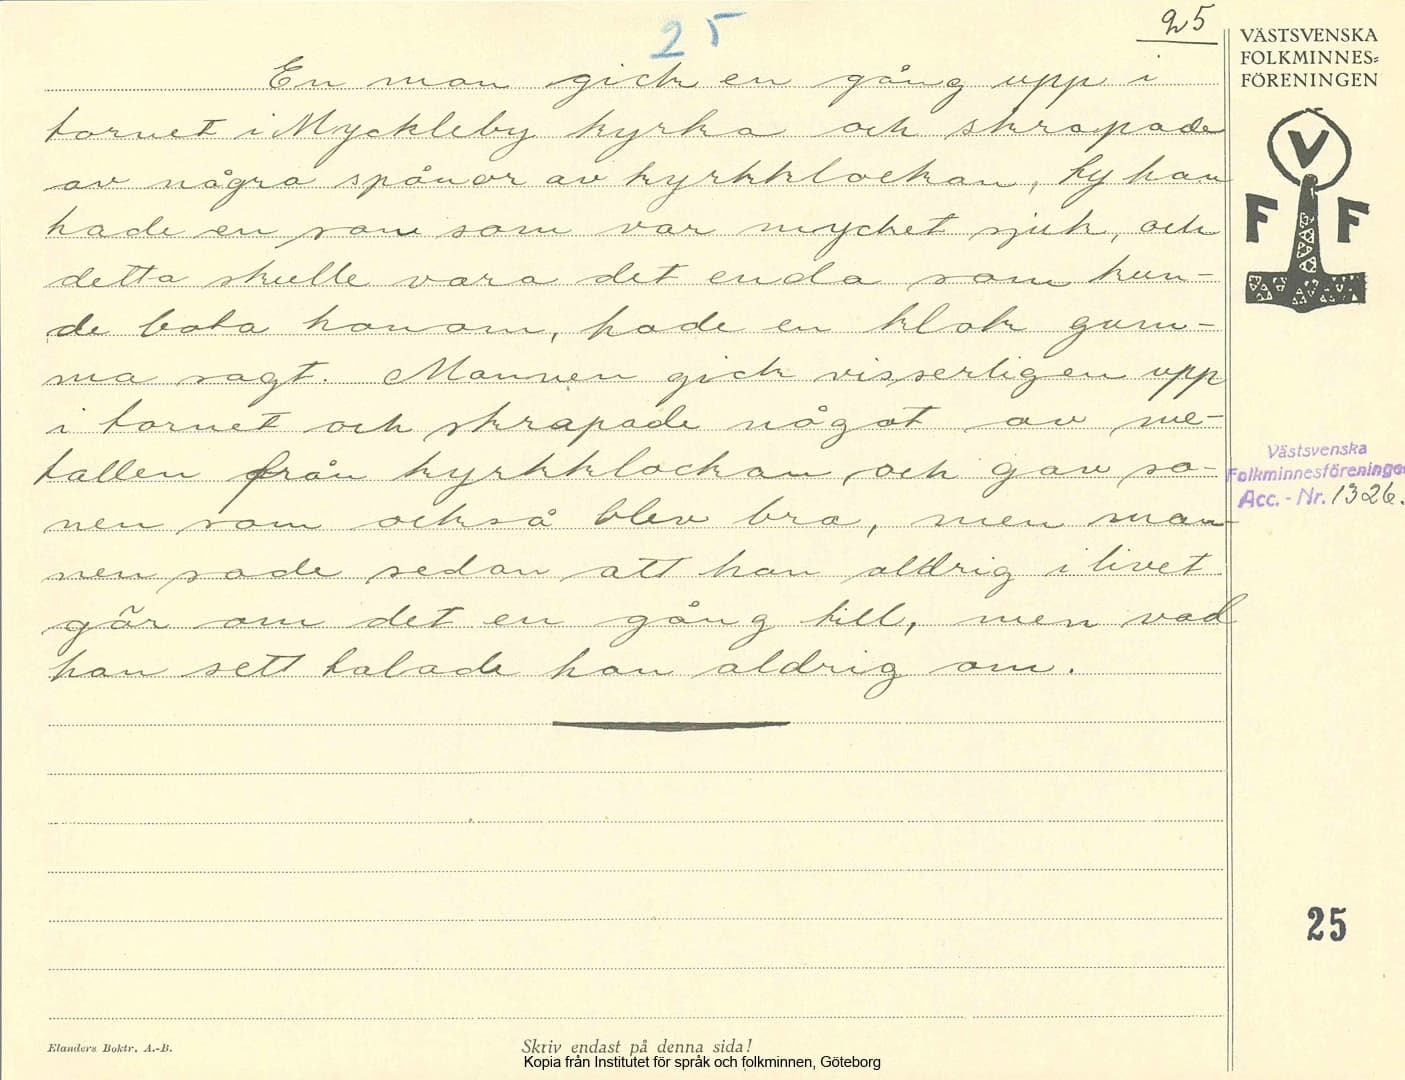 25
25
VÄSTSVENSKA
FOLKMINNES=
FÖRENINGEN
En man gick en gång upp i
tornet i Myckleby kyrka och skrapade
av några spånor av kyrkklockan, ty han
hade en son som var mycket sjuk, och
detta skulle vara det enda som kun-
de bota honom, hade en klok gum-
ma sagt. Mannen gick visserligen upp
i tornet och skrapade något av me-
tallen från kyrkklockan och gav so-
nen som också blev bra, men man-
nen sade sedan att han aldrig i livet
gör om det en gång till, men vad
han sett talade han aldrig om.
V
F F
Västsvenska
Folkminnesföreningen
Acc. - Nr. 1326.
25
Elanders Boktr. A.-B.
Skriv endast på denna sida!
Kopia från Institutet för språk och folkminnen, Göteborg